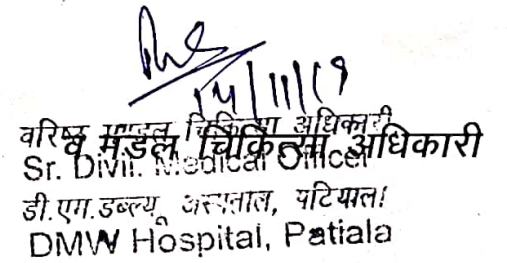 14/11/19
वरिष्ठ मण्डल चिकित्सा अधिकारी
व मंडल चिकित्सा अधिकारी
Sr. Divil. Medical Officer
डी.एम.डब्ल्यू अस्पताल, पटियाला
DMW Hospital, Patiala